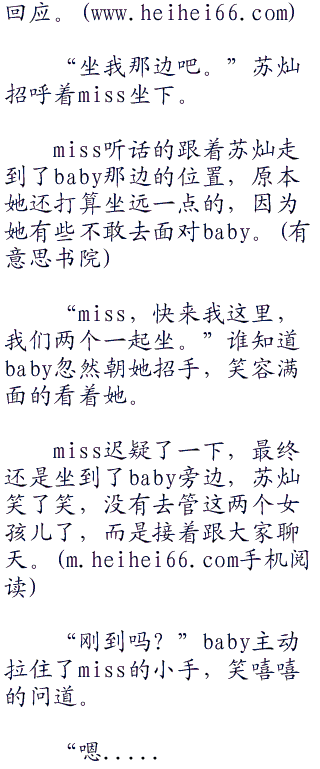 回应。(www.heihei66.com)
“坐我那边吧。”苏灿
招呼着miss坐下。
miss听话的跟着苏灿走
到了baby那边的位置，原本
她还打算坐远一点的，因为
她有些不敢去面对baby。(有
意思书院)
“miss，快来我这里，
我们两个一起坐。”谁知道
baby忽然朝她招手，笑容满
面的看着她。
miss迟疑了一下，最终
还是坐到了baby旁边，苏灿
笑了笑，没有去管这两个女
孩儿了，而是接着跟大家聊
天。(m.heihei66.com手机阅
读)
“刚到吗？”baby主动
拉住了miss的小手，笑嘻嘻
的问道。
“嗯.....